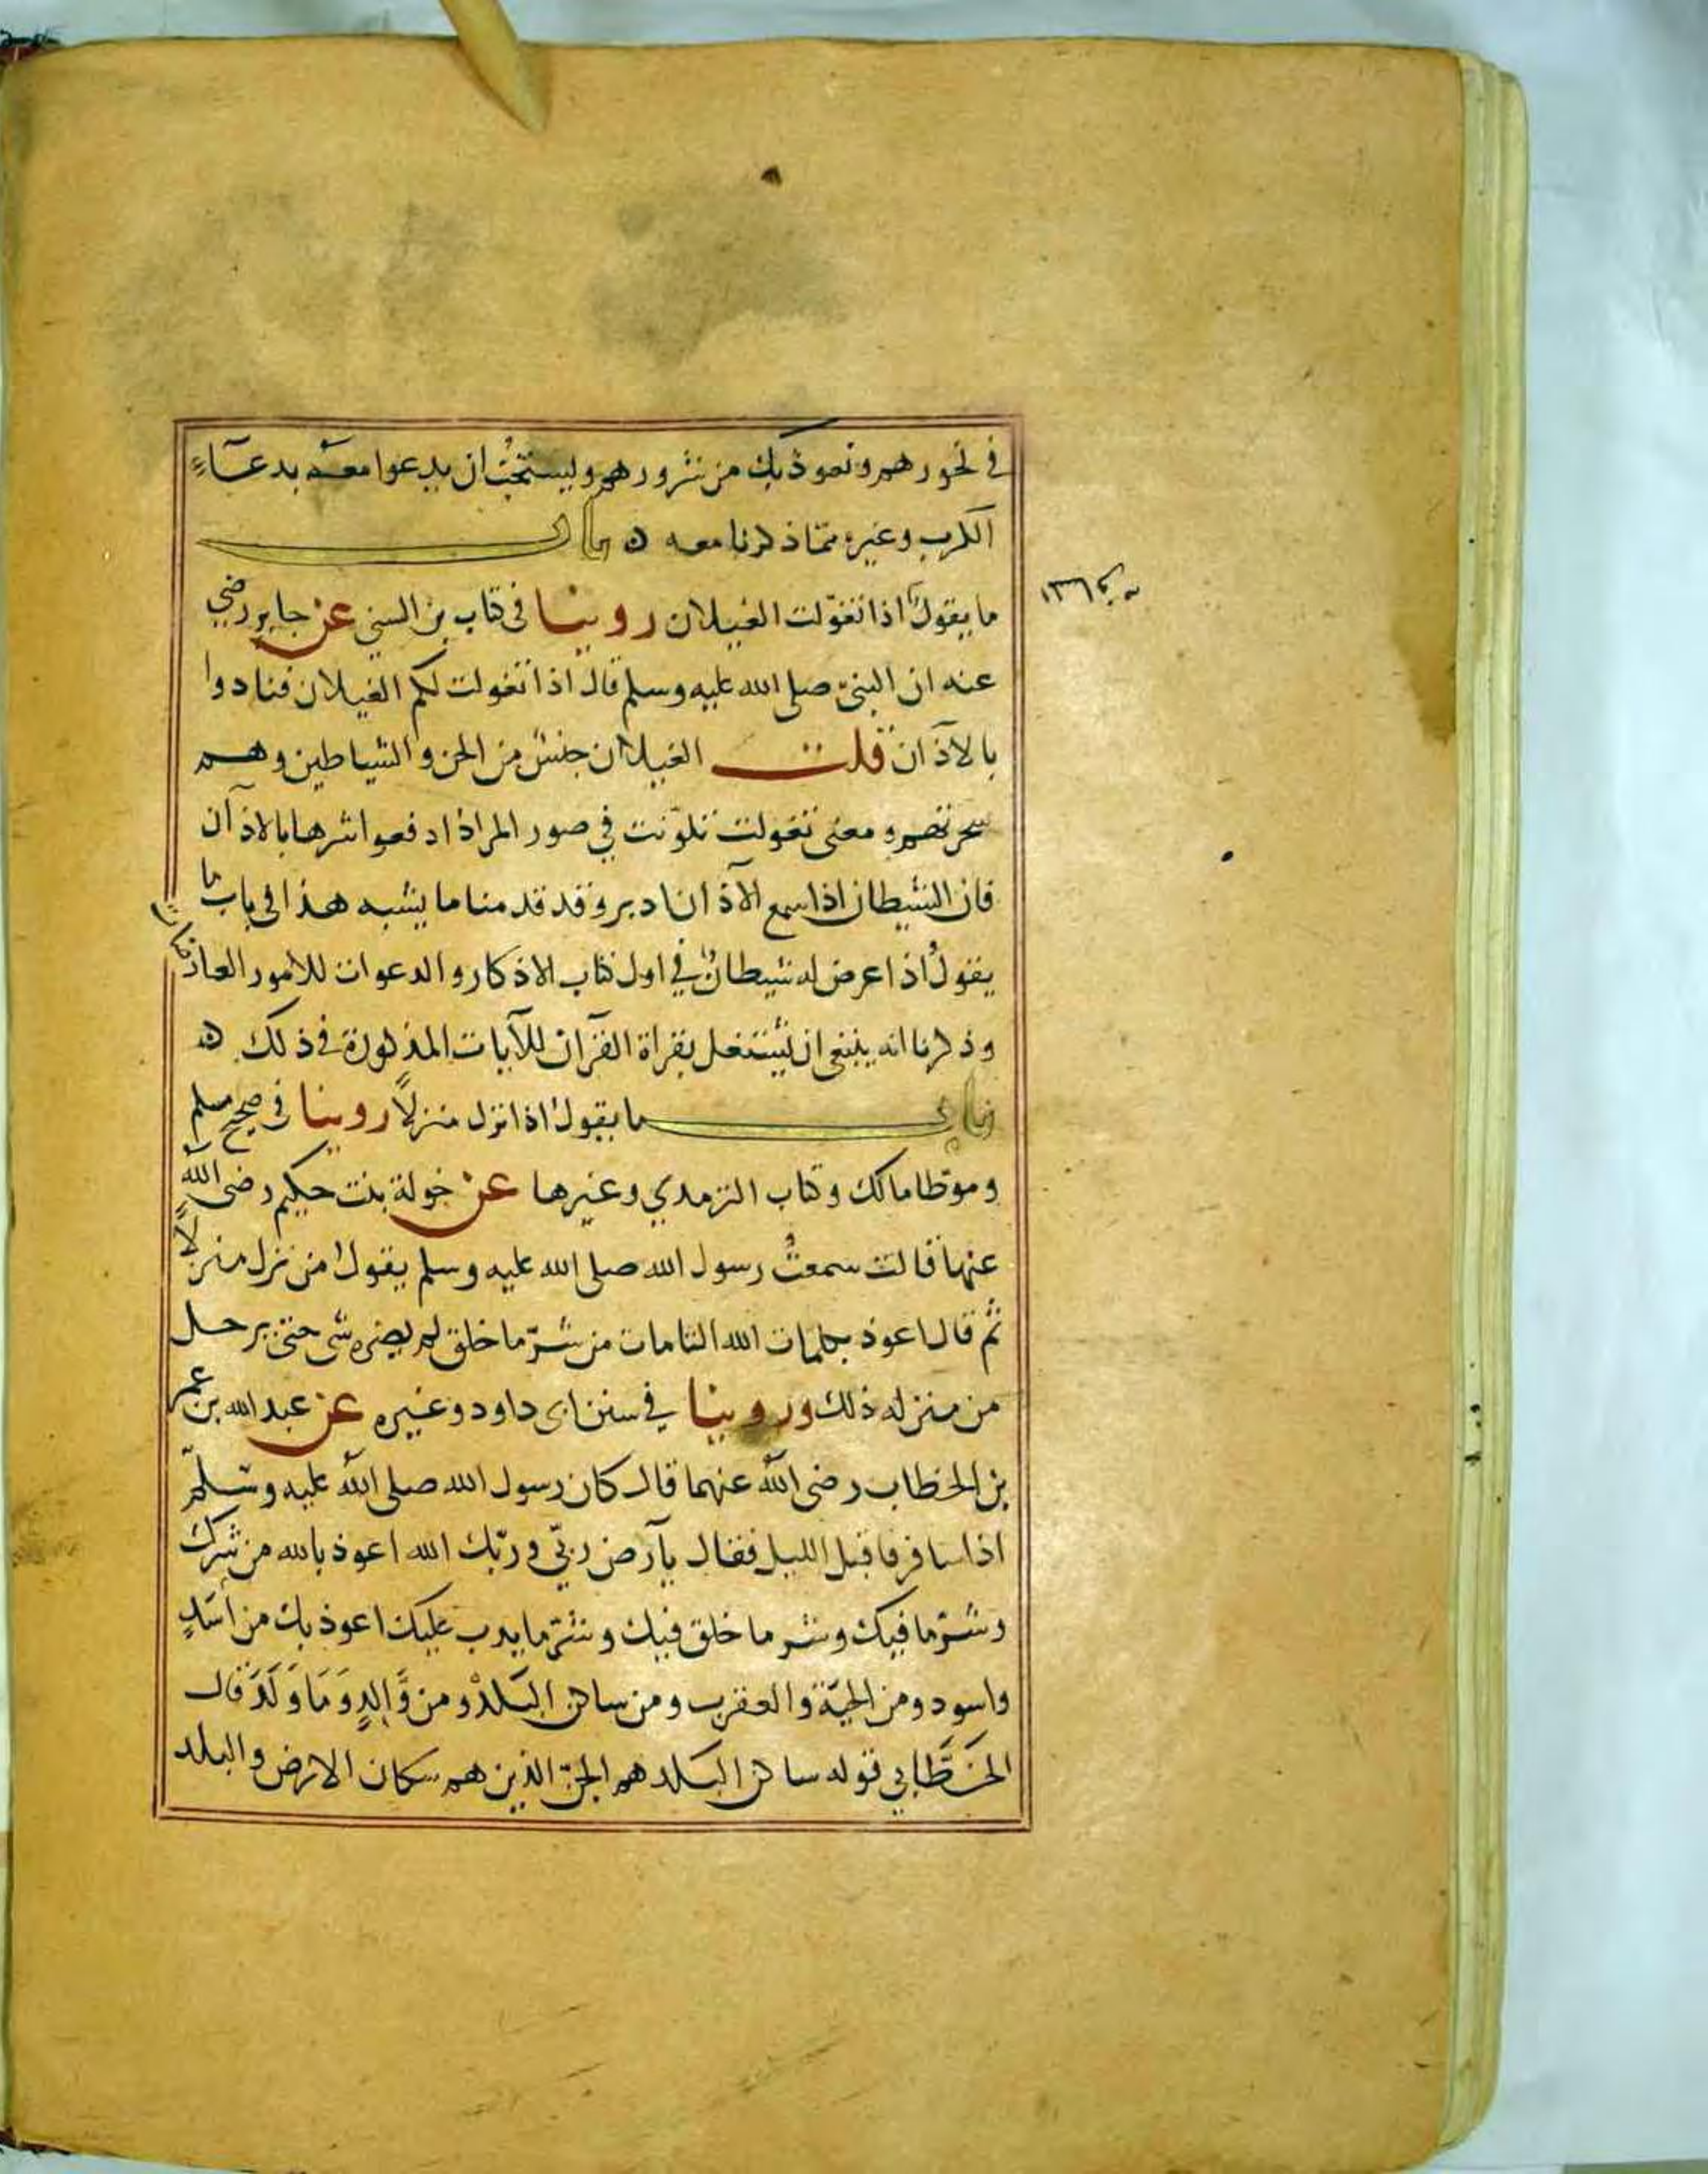 في نحورهم ونعوذ بك من شرورهم ويستحبُّ ان يدعوا معه بدعآءِ
الكرب وغيره مما ذكرنا معه ۞ باب
ما يقولُ اذا تغوّلت الغيلان روينا في كتاب بن السني عن جابر رضي
عنه ان النبيّ صلى الله عليه وسلم قال اذا تغولت لكم الغيلان فنادوا
بالاذآن قلت الغيلان جنسٌ من الجن والشياطين وهم
سحرتهم ومعنى تغولت تلوّنت في صور المراد ادفعوا شرها بالاذآن
فان الشيطان اذا سمع الآذان ادبر وقد قدمنا ما يشبه هذا في باب ما
يقولُ اذا عرض له شيطانٌ في اول كتاب الاذكار والدعوات للامور العارضات
وذكرنا انه ينبغي ان يشتغل بقراة القرآن للآيات المذكورة في ذلك ۞
باب ما يقولُ اذا نزل منزلاً روينا في صحيح مسلم
وموطا مالك وكتاب الترمدي وغيرها عن خولة بنت حكيم رضى الله
عنها قالت سمعتُ رسول الله صلى الله عليه وسلم يقولُ من نزل منزلاً
ثم قال اعوذ بكلمات الله التامات من شرّ ما خلق لم يضره شى حتى يرحل
من منزله ذلك وروينا في سنن ابى داود وغيره عن عبد الله بن عمر
بن الخطاب رضى الله عنهما قال كان رسول الله صلى الله عليه وسلّم
اذا سافر فاقبل الليل فقال يآرض ربّي وربّك الله اعوذ بالله من شرك
وشرّ ما فيك وشر ما خلق فيك وشرّ ما يدب عليك اعوذ بك من اسَدٍ
واسود ومن الحيّة والعقرب ومن ساكن البَلَد ومن وَّالِدٍ وَمَا وَلَدَ قال
الخَطَّابي قوله ساكن البَلد هم الجنّ الذين هم سكان الارض والبلد